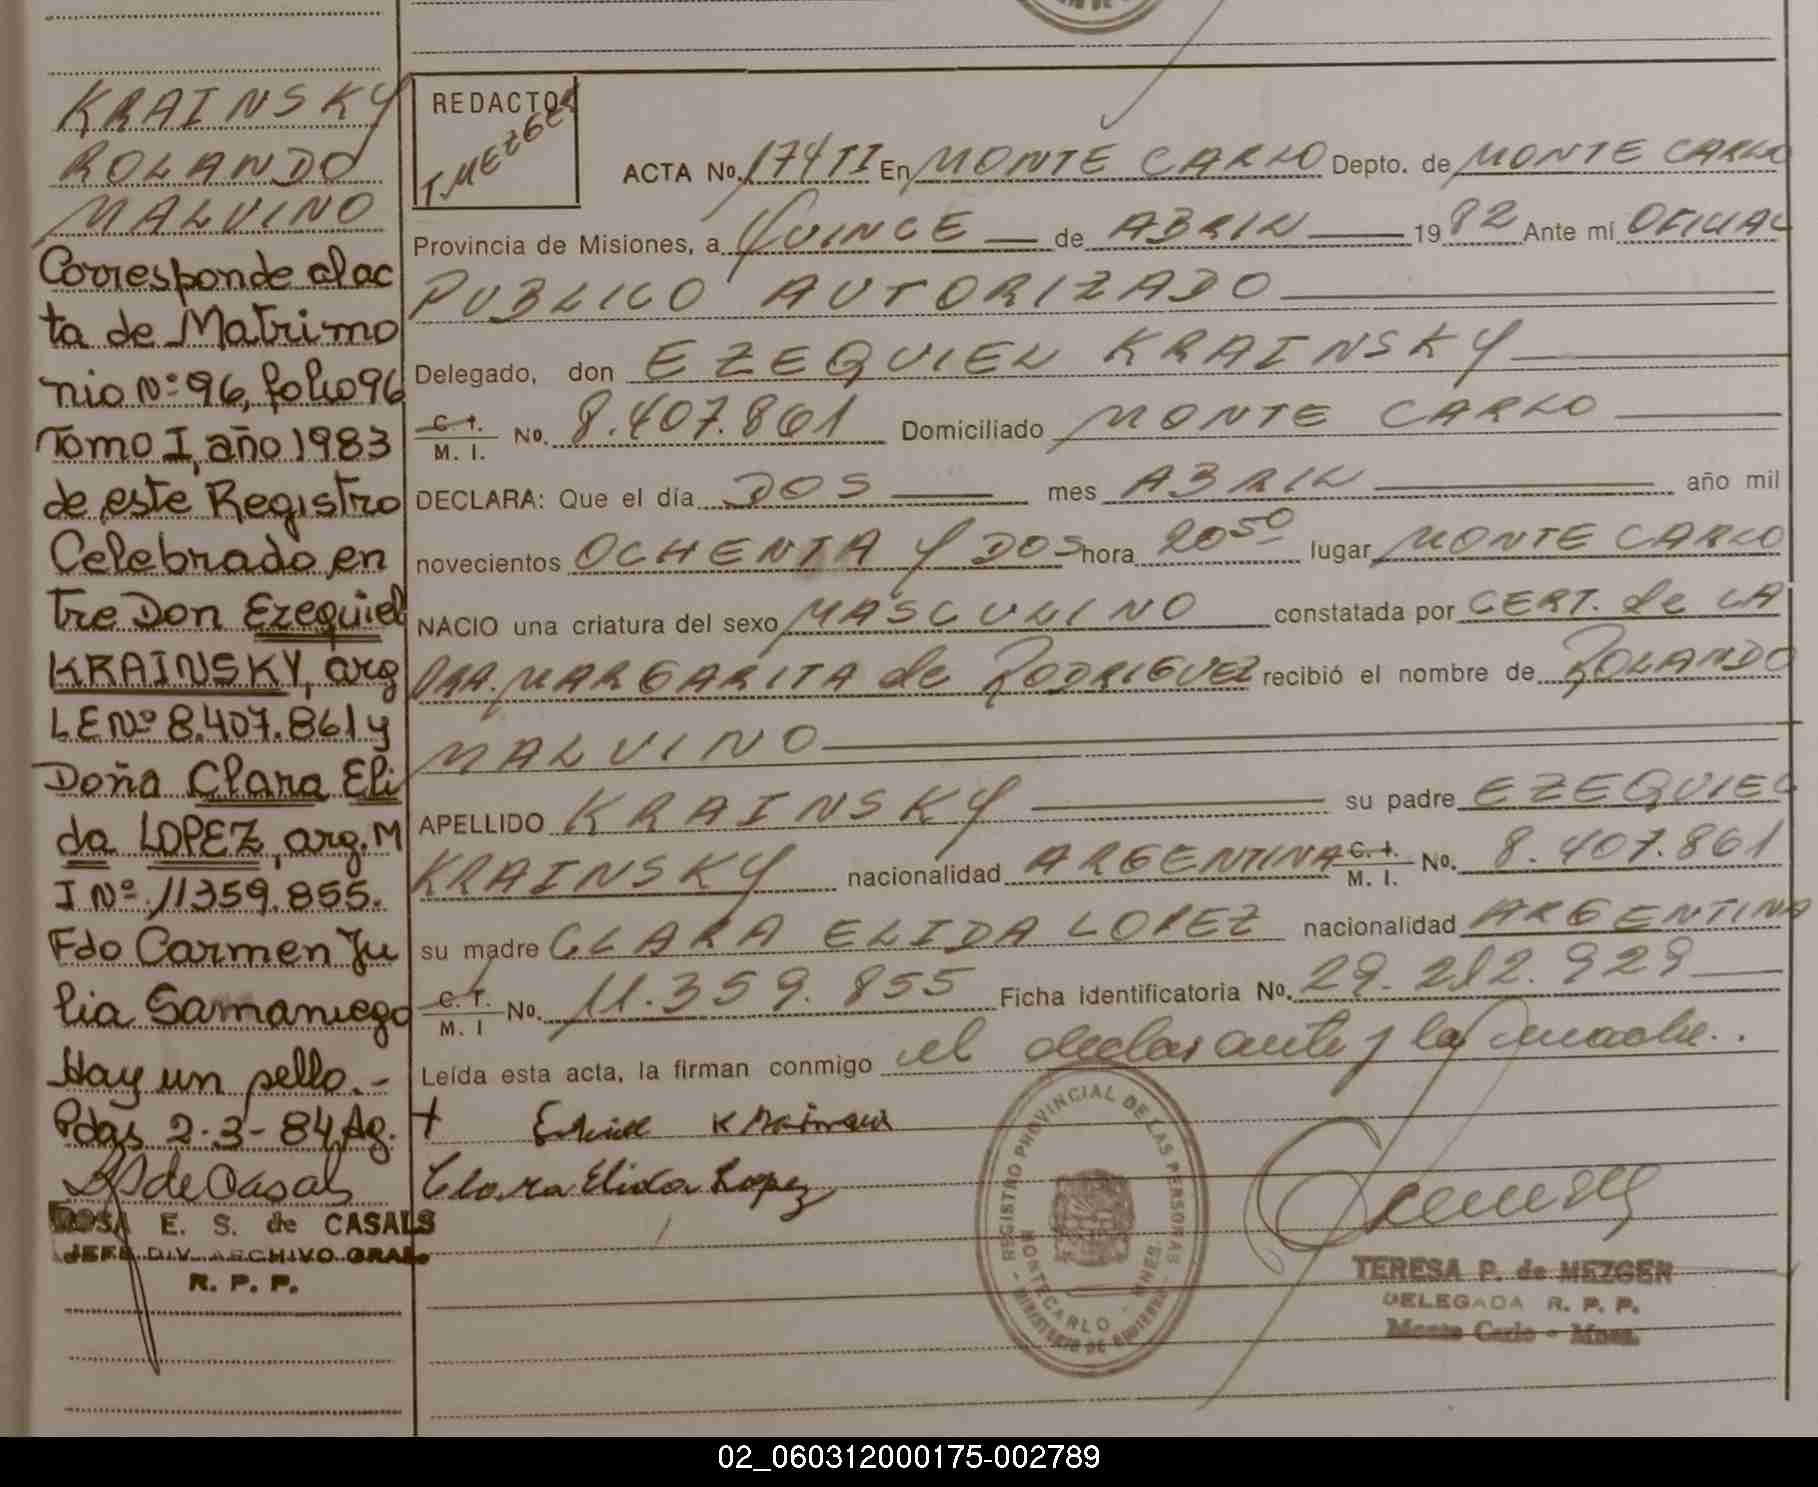 KRAINSKY
ROLANDO
MALVINO
Corresponde al ac
ta de Matrimo
nio Nº 96, folio 96
Tomo I, año 1983
de este Registro
Celebrado en
tre Don Ezequiel
KRAINSKY, arg
LE Nº 8.407.861 y
Doña Clara Eli
da LOPEZ, arg. M
I Nº 11359.855.
Fdo Carmen Ju
lia Samaniego
Hay un sello.-
Pdas 2-3-84 Ag.
de Casals
ROSA E. S. de CASALS
JEFE DIV. ARCHIVO GRAL.
R. P. P.
REDACTOR
T. MEZGER
ACTA No. 174 TI En MONTE CARLO Depto. de MONTE CARLO
Provincia de Misiones, a QUINCE — de ABRIL — 1982 Ante mí OFICIAL
PUBLICO AUTORIZADO
Delegado, don EZEQUIEL KRAINSKY
C. I. M. I. No. 8.407.861 Domiciliado MONTE CARLO
DECLARA: Que el día DOS — mes ABRIL — año mil
novecientos OCHENTA Y DOS hora 20 50 lugar MONTE CARLO
NACIO una criatura del sexo MASCULINO constatada por CERT. de LA
DRA. MARGARITA de RODRIGUEZ recibió el nombre de ROLANDO
MALVINO
APELLIDO KRAINSKY — su padre EZEQUIEL
KRAINSKY nacionalidad ARGENTINA C. I. M. I. No. 8.407.861
su madre CLARA ELIDA LOPEZ nacionalidad ARGENTINA
C. I. M. I No. 11.359.855 Ficha identificatoria No. 29.212.929
Leída esta acta, la firman conmigo el declarante y la madre..
Clara Elida Lopez
REGISTRO PROVINCIAL DE LAS PERSONAS
MONTECARLO - MNES.
MINISTERIO DE GOBIERNO
TERESA P. de MEZGER
DELEGADA R. P. P.
Monte Carlo - Mnes.
02_060312000175-002789